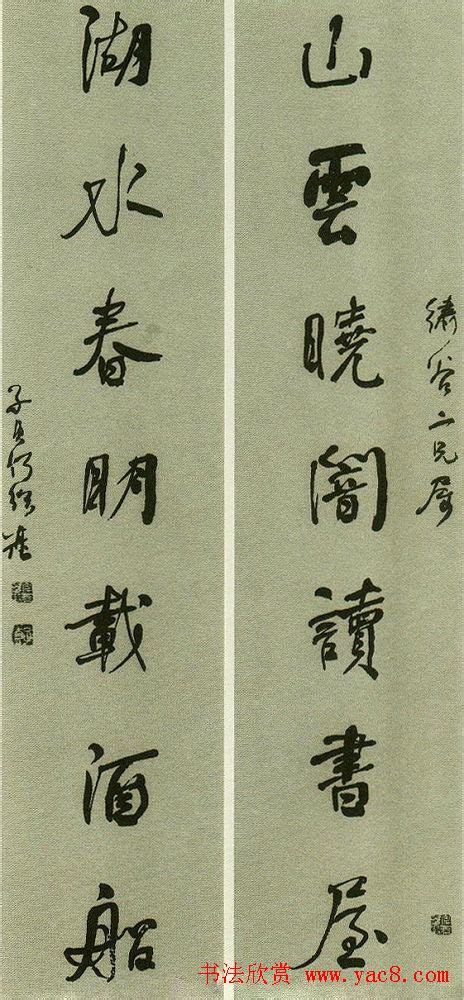 繡谷二兄屬
山雲曉闇讀書屋
湖水春眀載酒船
子貞何紹基
书法欣赏 www.yac8.com